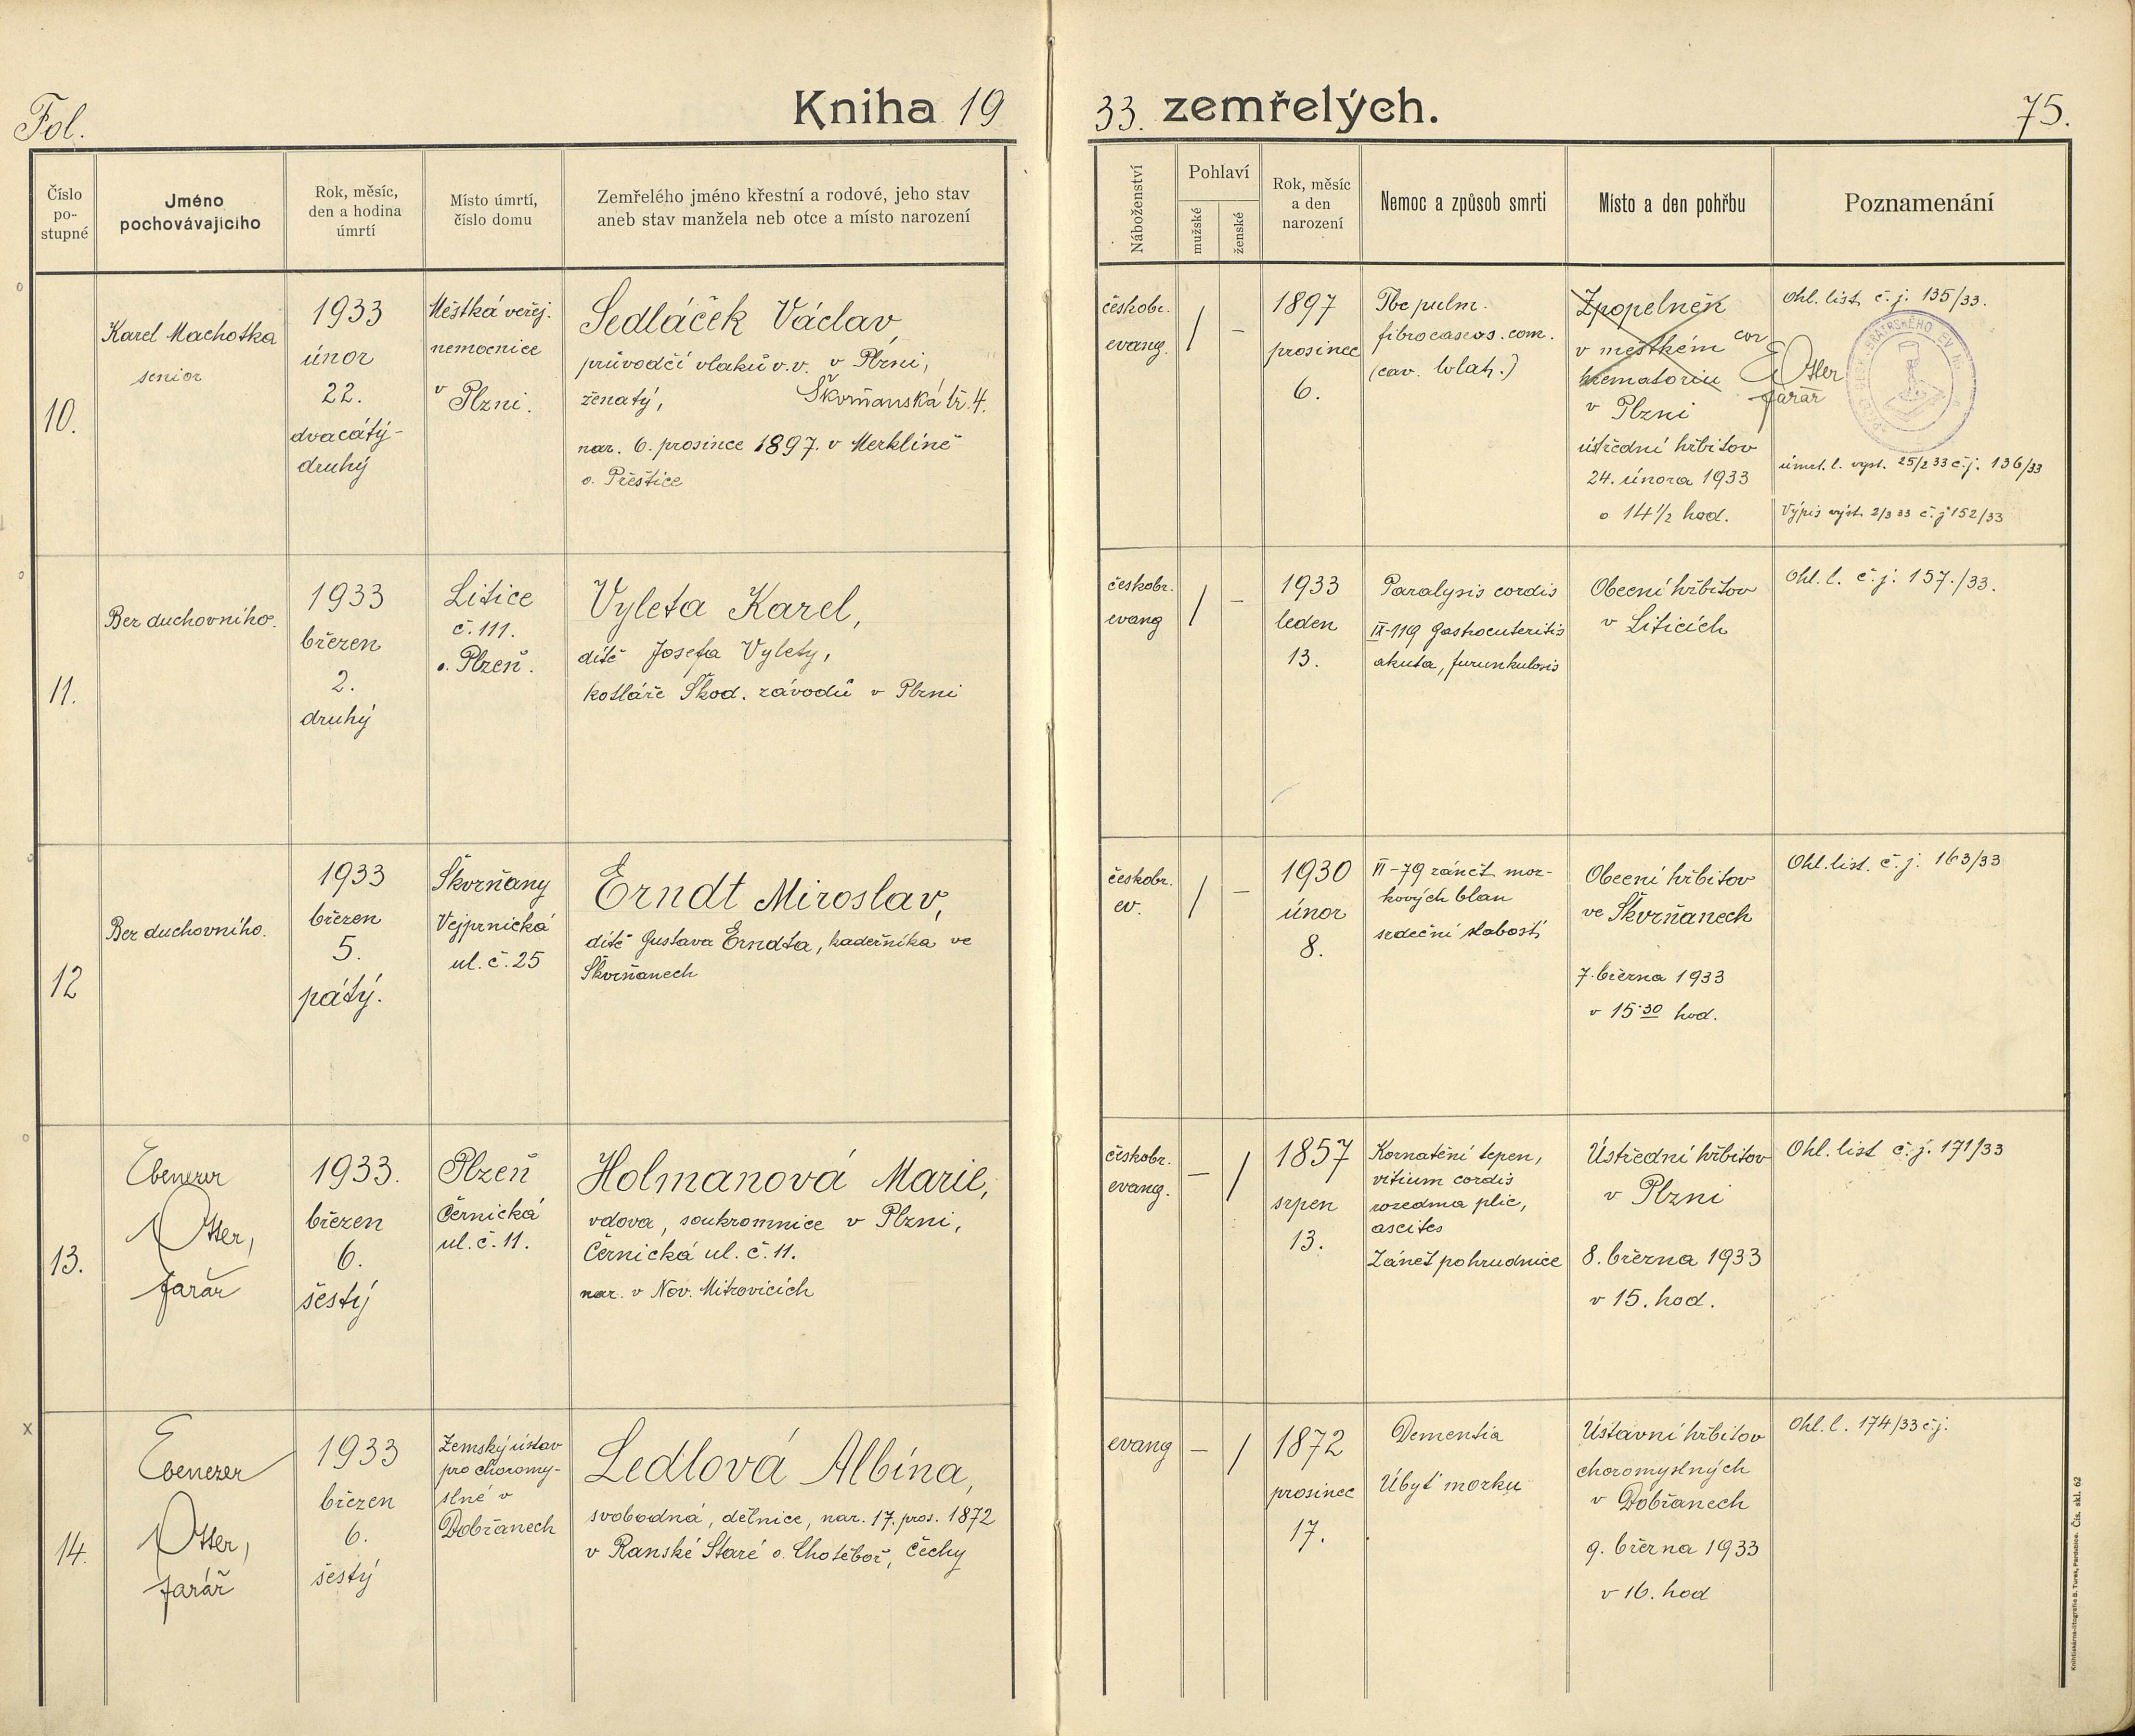 Fol.
Kniha 19
33. zemřelých.
75.
Číslo
po-
stupné
Jméno
pochovávajícího
Rok, měsíc,
den a hodina
úmrtí
Místo úmrtí,
číslo domu
Zemřelého jméno křestní a rodové, jeho stav
aneb stav manžela neb otce a místo narození
Náboženství
Pohlaví
mužské
ženské
Rok, měsíc
a den
narození
Nemoc a způsob smrti
Místo a den pohřbu
Poznamenání
10.
Karel Machotka
senior
1933
únor
22.
dvacátý-
druhý
Městká veřej.
nemocnice
v Plzni.
Sedláček Václav
průvodčí vlaků v.v. v Plzni,
ženatý, Škvrňanská tř. 4.
nar. 6. prosince 1897. v Merklíně
o. Přeštice
českobr.
evang.
/
–
1897
prosinec
6.
Tbc pulm.
fibrocaseos. com.
(cav.
Zpopelněn
v mestkém
krematoriu
v Plzni
ústřední hřbitov
24. února 1933
o 14 1/2 hod.
Ohl. list č. j. 135/33.
cor
E Otter
farář
úmrt. l. vyst. 25/2 33 č. j. 136/33
Výpis vyst. 2/3 33 č. j 152/33
11.
Bez duchovního.
1933
březen
2.
druhý
Litice
č. 111.
o. Plzeň.
Vyleta Karel,
dítě Josefa Vylety,
kotláře Škod. závodů v Plzni
českobr.
evang
/
–
1933
leden
13.
Paralysis cordis
IX-119 Gastroenteritis
akuta, furunkulosis
Obecní hřbitov
v Liticích
Ohl. l. č. j. 157./33.
12
Bez duchovního.
1933
březen
5.
pátý.
Škvrňany
Vejprnická
ul. č. 25
Erndt Miroslav,
dítě Gustava Erndta, kadeřníka ve
Škvrňanech
českobr.
ev.
/
–
1930
únor
8.
VI-79 zánět moz-
kových blan
srdeční slabost
Obecní hřbitov
ve Škvrňanech
7. března 1933
v 15·30 hod.
Ohl. list. č. j. 163/33
13.
Ebenezer
Otter,
farář
1933.
březen
6.
šestý
Plzeň
Černická
ul. č. 11.
Holmanová Marie,
vdova, soukromnice v Plzni,
Černická ul. č. 11.
nar. v Nov. Mitrovicích
českobr.
evang.
–
/
1857
srpen
13.
Kornatění tepen,
vitium cordis
rozedma plic,
ascites
Zánět pohrudnice
Ústřední hřbitov
v Plzni
8. března 1933
v 15. hod.
Ohl. list č. j. 171/33
x
14.
Ebenezer
Otter,
farář
1933
březen
6.
šestý
Zemský ústav
pro choromy-
slné v
Dobřanech
Ledlová Albína,
svobodná, dělnice, nar. 17. pros. 1872
v Ranské Staré o. Chotěboř, Čechy
evang
–
/
1872
prosinec
17.
Dementia
Úbyť mozku
Ústavní hřbitov
choromyslných
v Dobřanech
9. března 1933
v 16. hod
Ohl. l. 174/33 č. j.
Knihtiskárna-litografie B. Turek, Pardubice. Čís. skl. 62